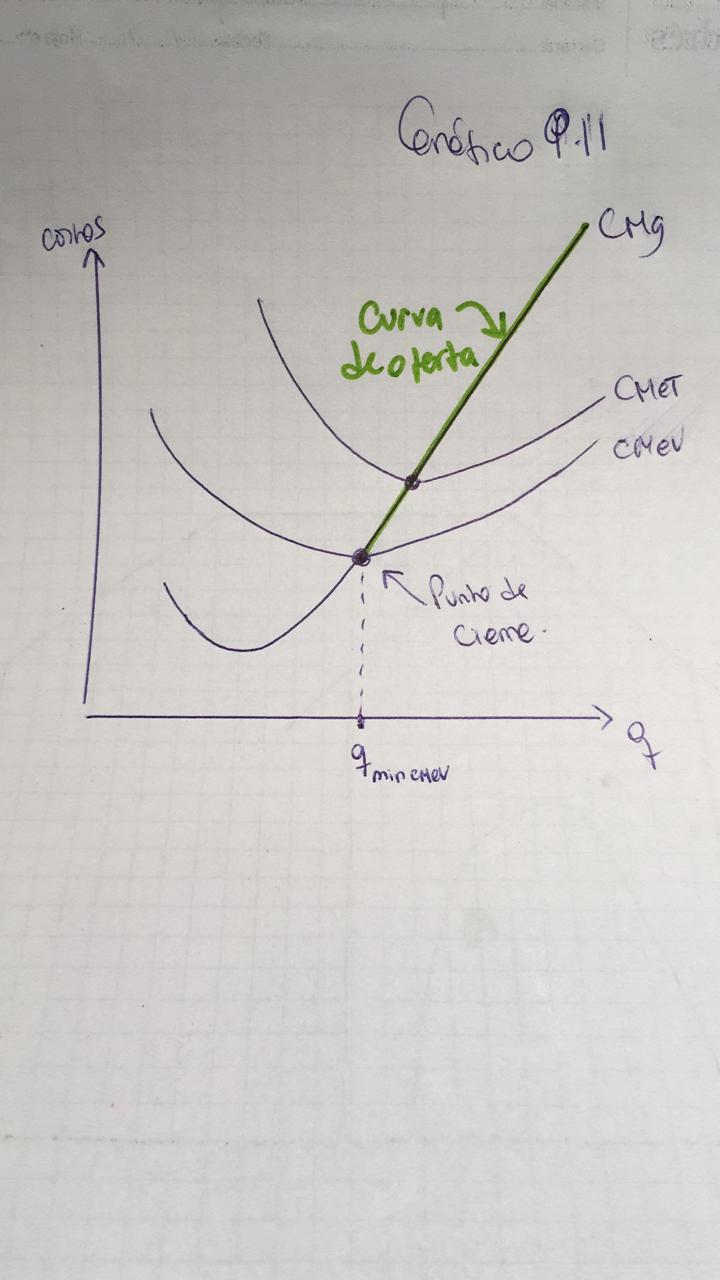 Gráfico 9.11
costos
CMg
Curva
de oferta
CMeT
CMeV
Punto de
Cierre.
q
q min CMeV